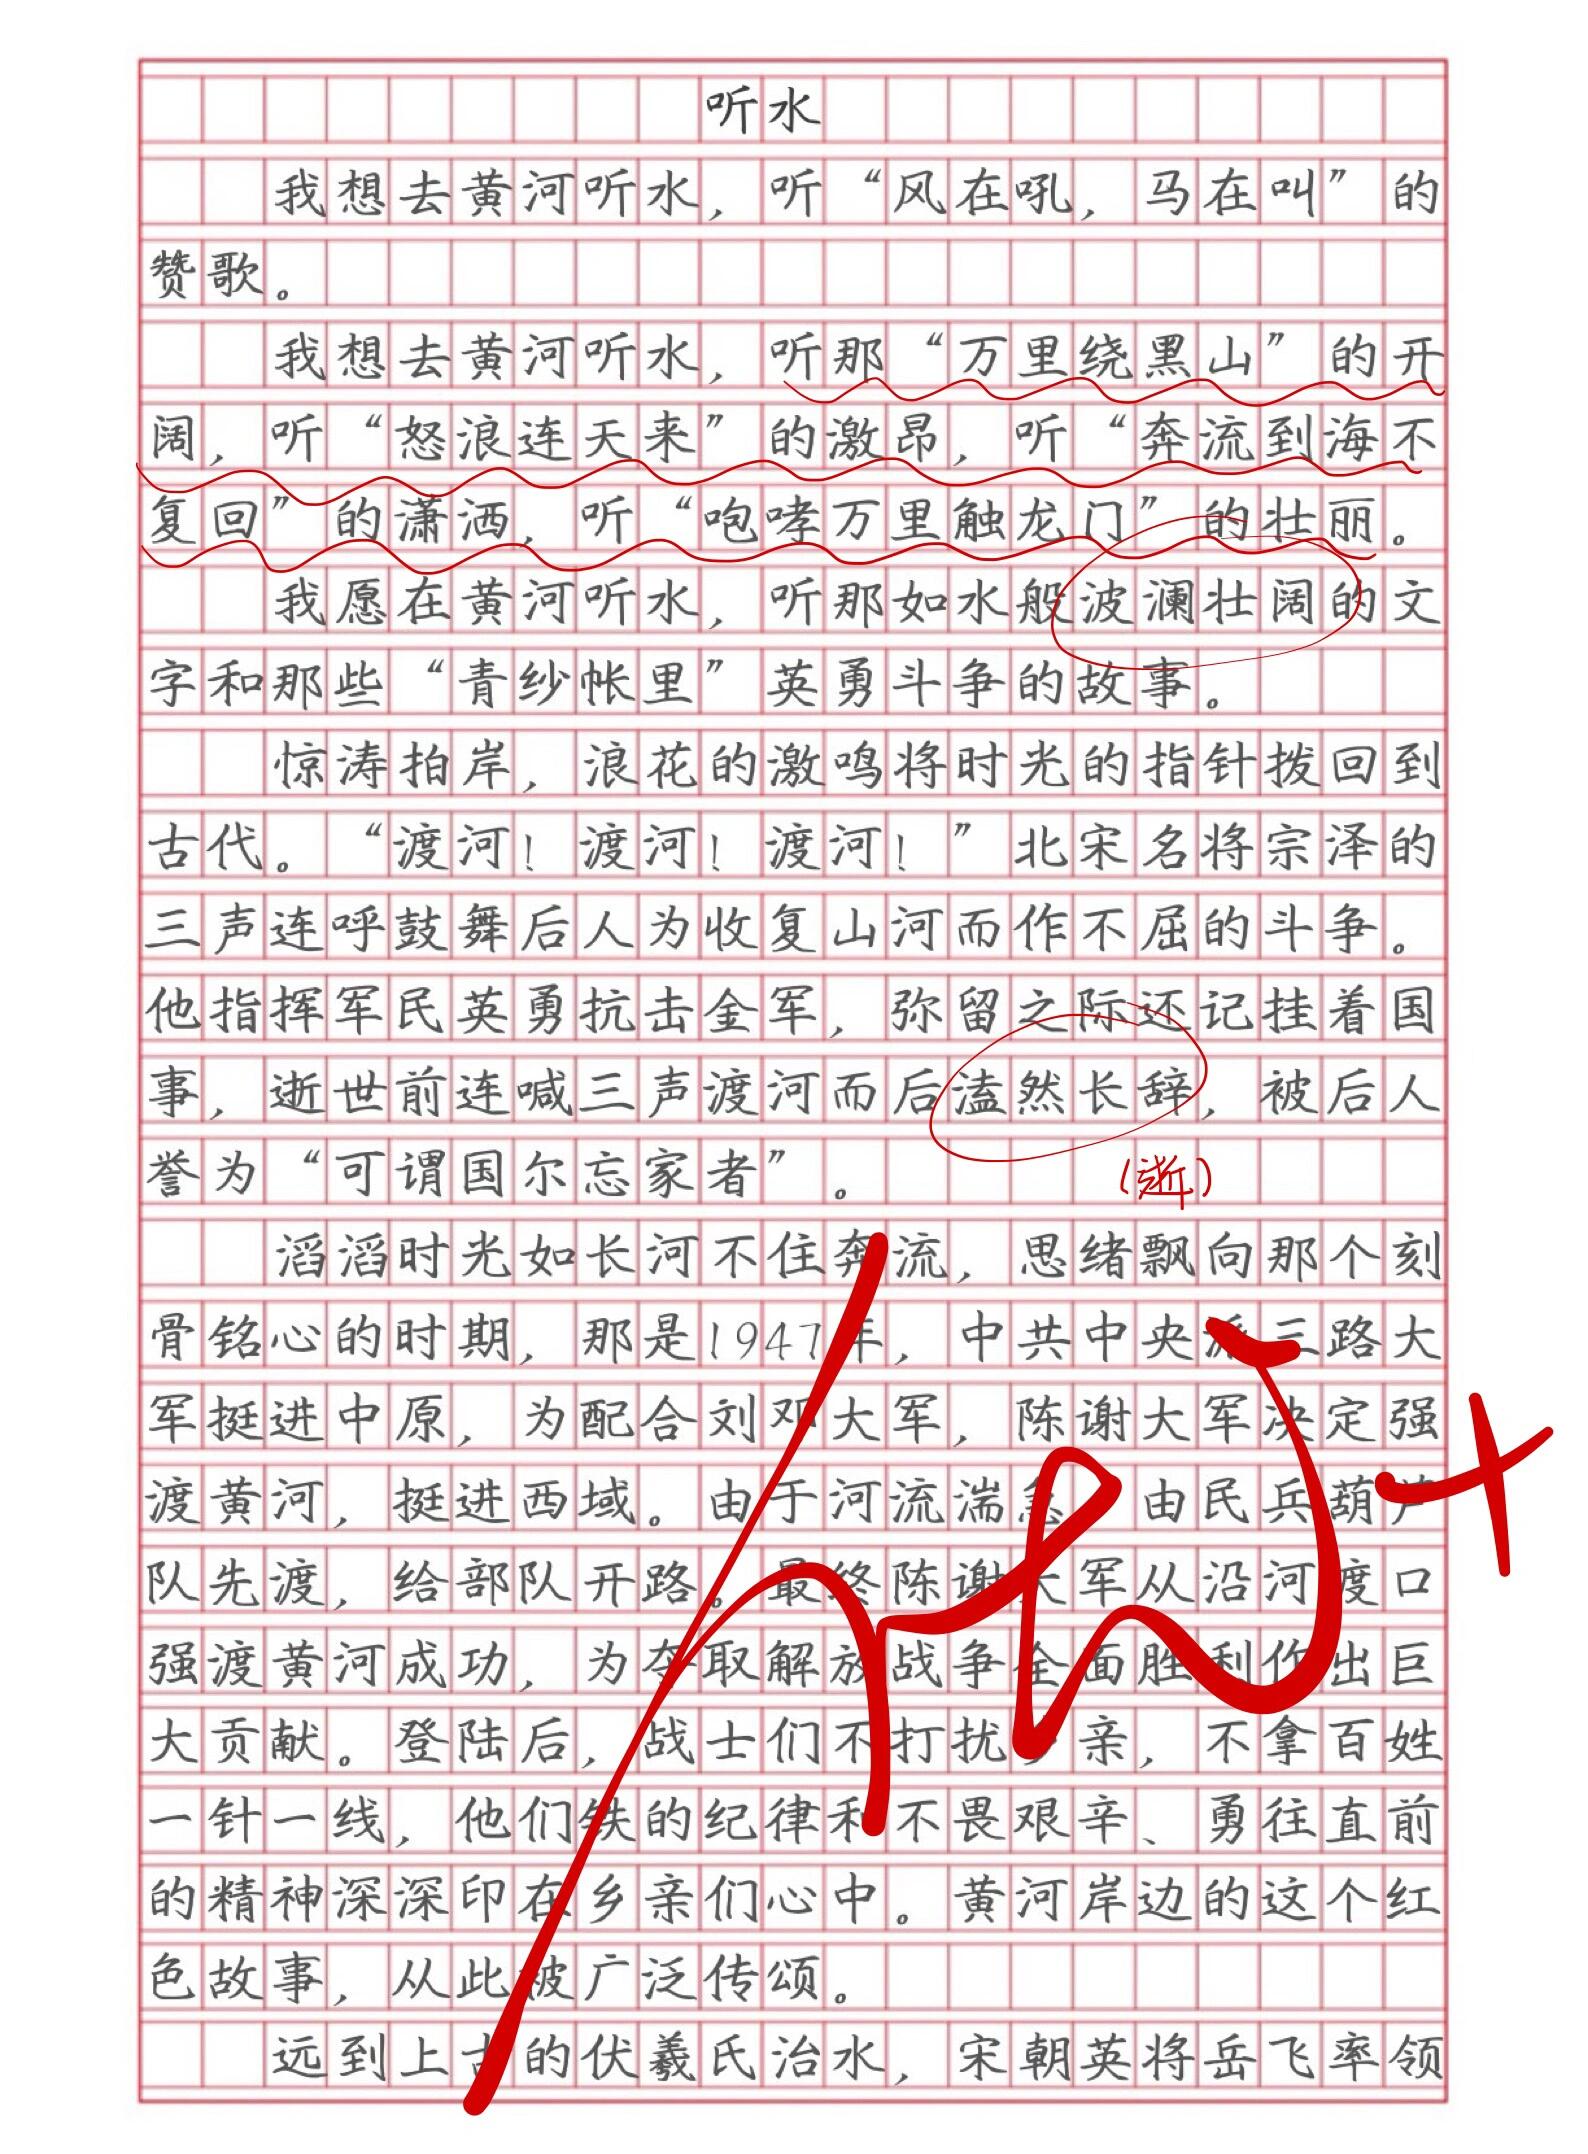 听水
我想去黄河听水，听“风在吼，马在叫”的
赞歌。
我想去黄河听水，听那“万里绕黑山”的开
阔，听“怒浪连天来”的激昂，听“奔流到海不
复回”的潇洒，听“咆哮万里触龙门”的壮丽。
我愿在黄河听水，听那如水般波澜壮阔的文
字和那些“青纱帐里”英勇斗争的故事。
惊涛拍岸，浪花的激鸣将时光的指针拨回到
古代。“渡河！渡河！渡河！”北宋名将宗泽的
三声连呼鼓舞后人为收复山河而作不屈的斗争。
他指挥军民英勇抗击金军，弥留之际还记挂着国
事，逝世前连喊三声渡河而后溘然长辞，被后人
誉为“可谓国尔忘家者”。
（逝）
滔滔时光如长河不住奔流，思绪飘向那个刻
骨铭心的时期，那是1947年，中共中央派三路大
军挺进中原，为配合刘邓大军，陈谢大军决定强
渡黄河，挺进西域。由于河流湍急，由民兵葫芦
队先渡，给部队开路。最终陈谢大军从沿河渡口
强渡黄河成功，为夺取解放战争全面胜利作出巨
大贡献。登陆后，战士们不打扰乡亲，不拿百姓
一针一线，他们铁的纪律和不畏艰辛、勇往直前
的精神深深印在乡亲们心中。黄河岸边的这个红
色故事，从此被广泛传颂。
远到上古的伏羲氏治水，宋朝英将岳飞率领